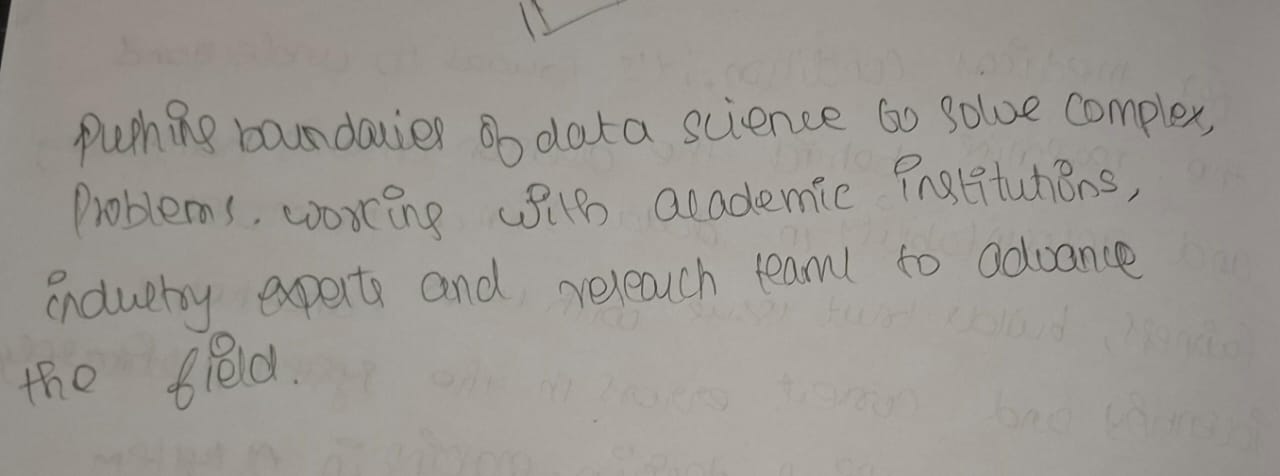 Pushing boundaries of data science to solve complex,
Problems. working with academic institutions,
industry experts and reseach teams to advance
the field.